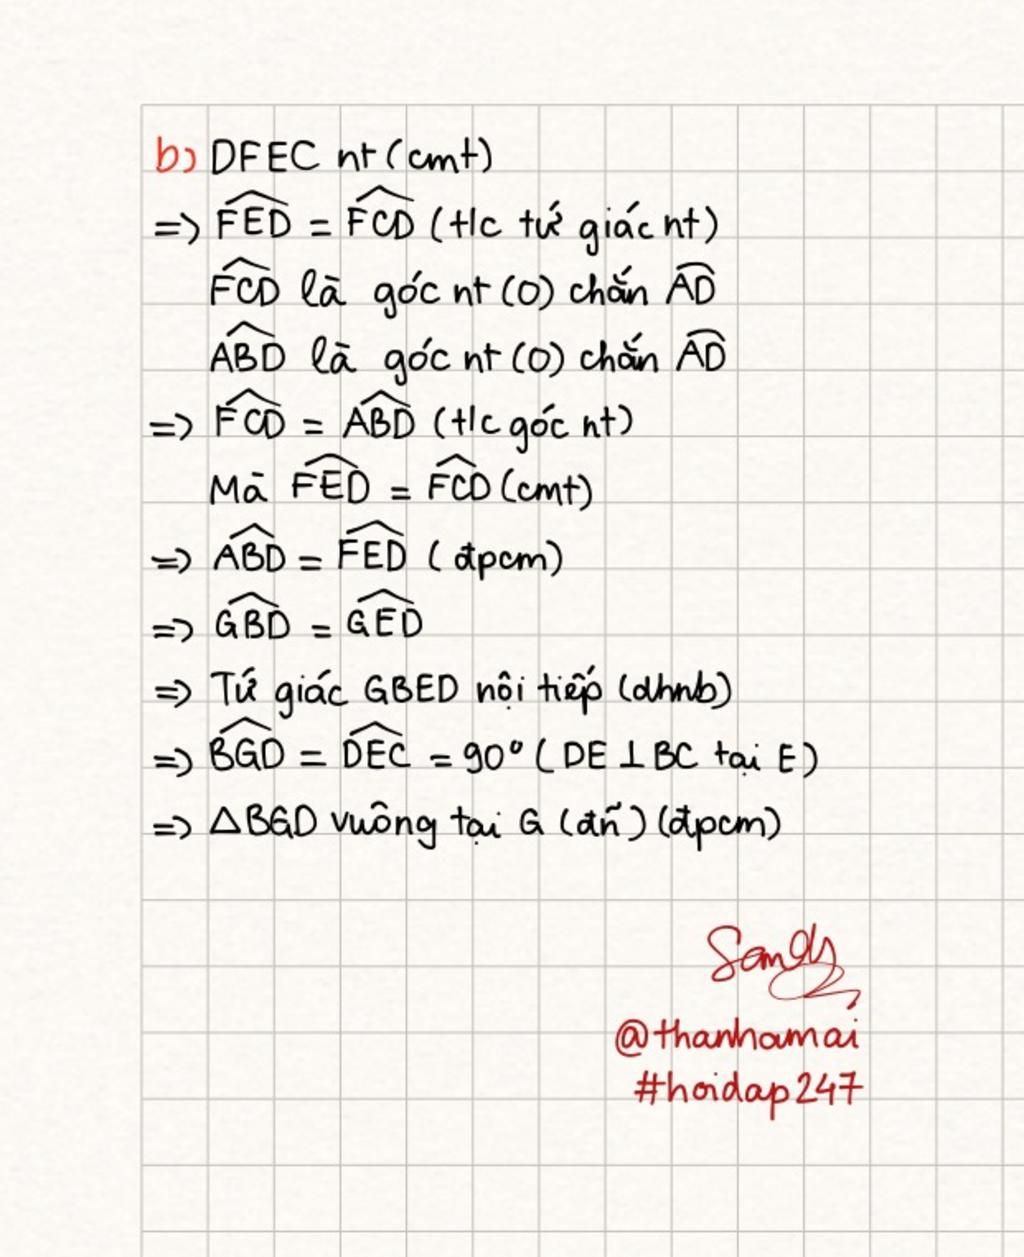 b) DFEC nt (cmt)
=> FED = FCD (t/c tứ giác nt)
FCD là góc nt (O) chắn AD
ABD là góc nt (O) chắn AD
=> FCD = ABD (t/c góc nt)
Mà FED = FCD (cmt)
=> ABD = FED (đpcm)
=> GBD = GED
=> Tứ giác GBED nội tiếp (dhnb)
=> BGD = DEC = 90° (DE ⊥ BC tại E)
=> △BGD vuông tại G (đn) (đpcm)
@thanhamai
#hoidap247